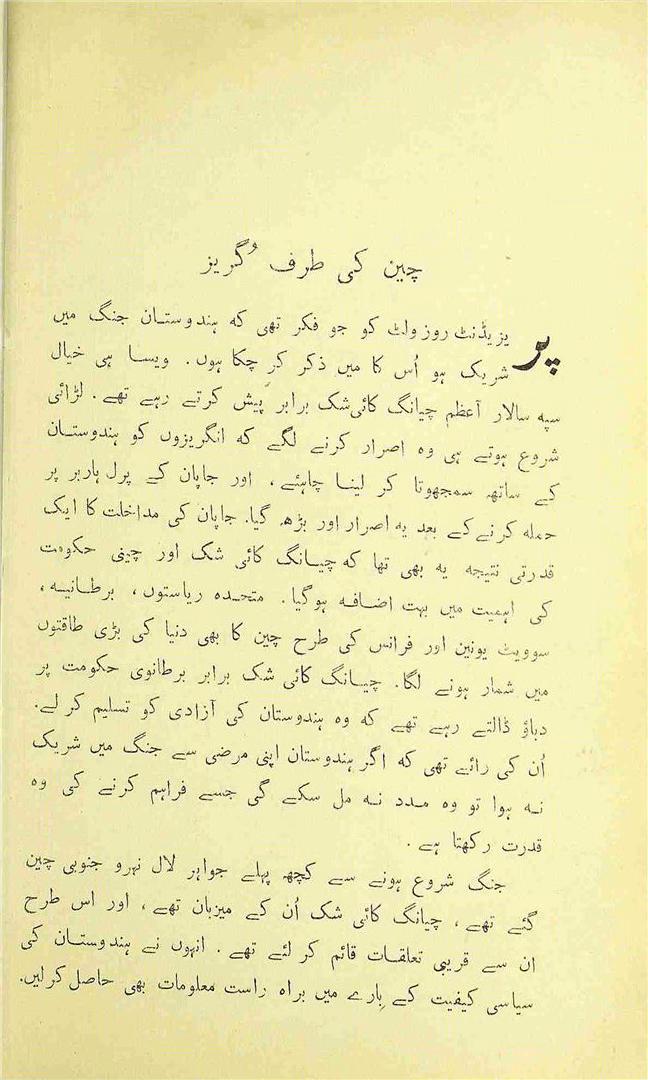 چین کی طرف گریز
پریزیڈنٹ روز ولٹ کو جو فکر تھی کہ ہندوستان جنگ میں
شریک ہو اُس کا میں ذکر کر چکا ہوں. ویسا ہی خیال
سپہ سالار آعظم چیانگ کائی شک برابر پیش کرتے رہے تھے. لڑائی
شروع ہوتے ہی وہ اصرار کرنے لگے کہ انگریزوں کو ہندوستان
کے ساتھ سمجھوتا کر لینا چاہئے، اور جاپان کے پرل ہاربر پر
حملہ کرنے کے بعد یہ اصرار اور بڑھ گیا. جاپان کی مداخلت کا ایک
قدرتی نتیجہ یہ بھی تھا کہ چیانگ کائی شک اور چینی حکومت
کی اہمیت میں بہت اضافہ ہوگیا. متحدہ ریاستوں، برطانیہ،
سوویٹ یونین اور فرانس کی طرح چین کا بھی دنیا کی بڑی طاقتوں
میں شمار ہونے لگا. چیانگ کائی شک برابر برطانوی حکومت پر
دباؤ ڈالتے رہے تھے کہ وہ ہندوستان کی آزادی کو تسلیم کر لے.
اُن کی رائے تھی کہ اگر ہندوستان اپنی مرضی سے جنگ میں شریک
نہ ہوا تو وہ مدد نہ مل سکے گی جسے فراہم کرنے کی وہ
قدرت رکھتا ہے.
جنگ شروع ہونے سے کچھ پہلے جواہر لال نہرو جنوبی چین
گئے تھے، چیانگ کائی شک اُن کے میزبان تھے، اور اس طرح
ان سے قریبی تعلقات قائم کر لئے تھے. انہوں نے ہندوستان کی
سیاسی کیفیت کے بارے میں براہ راست معلومات بھی حاصل کرلیں.